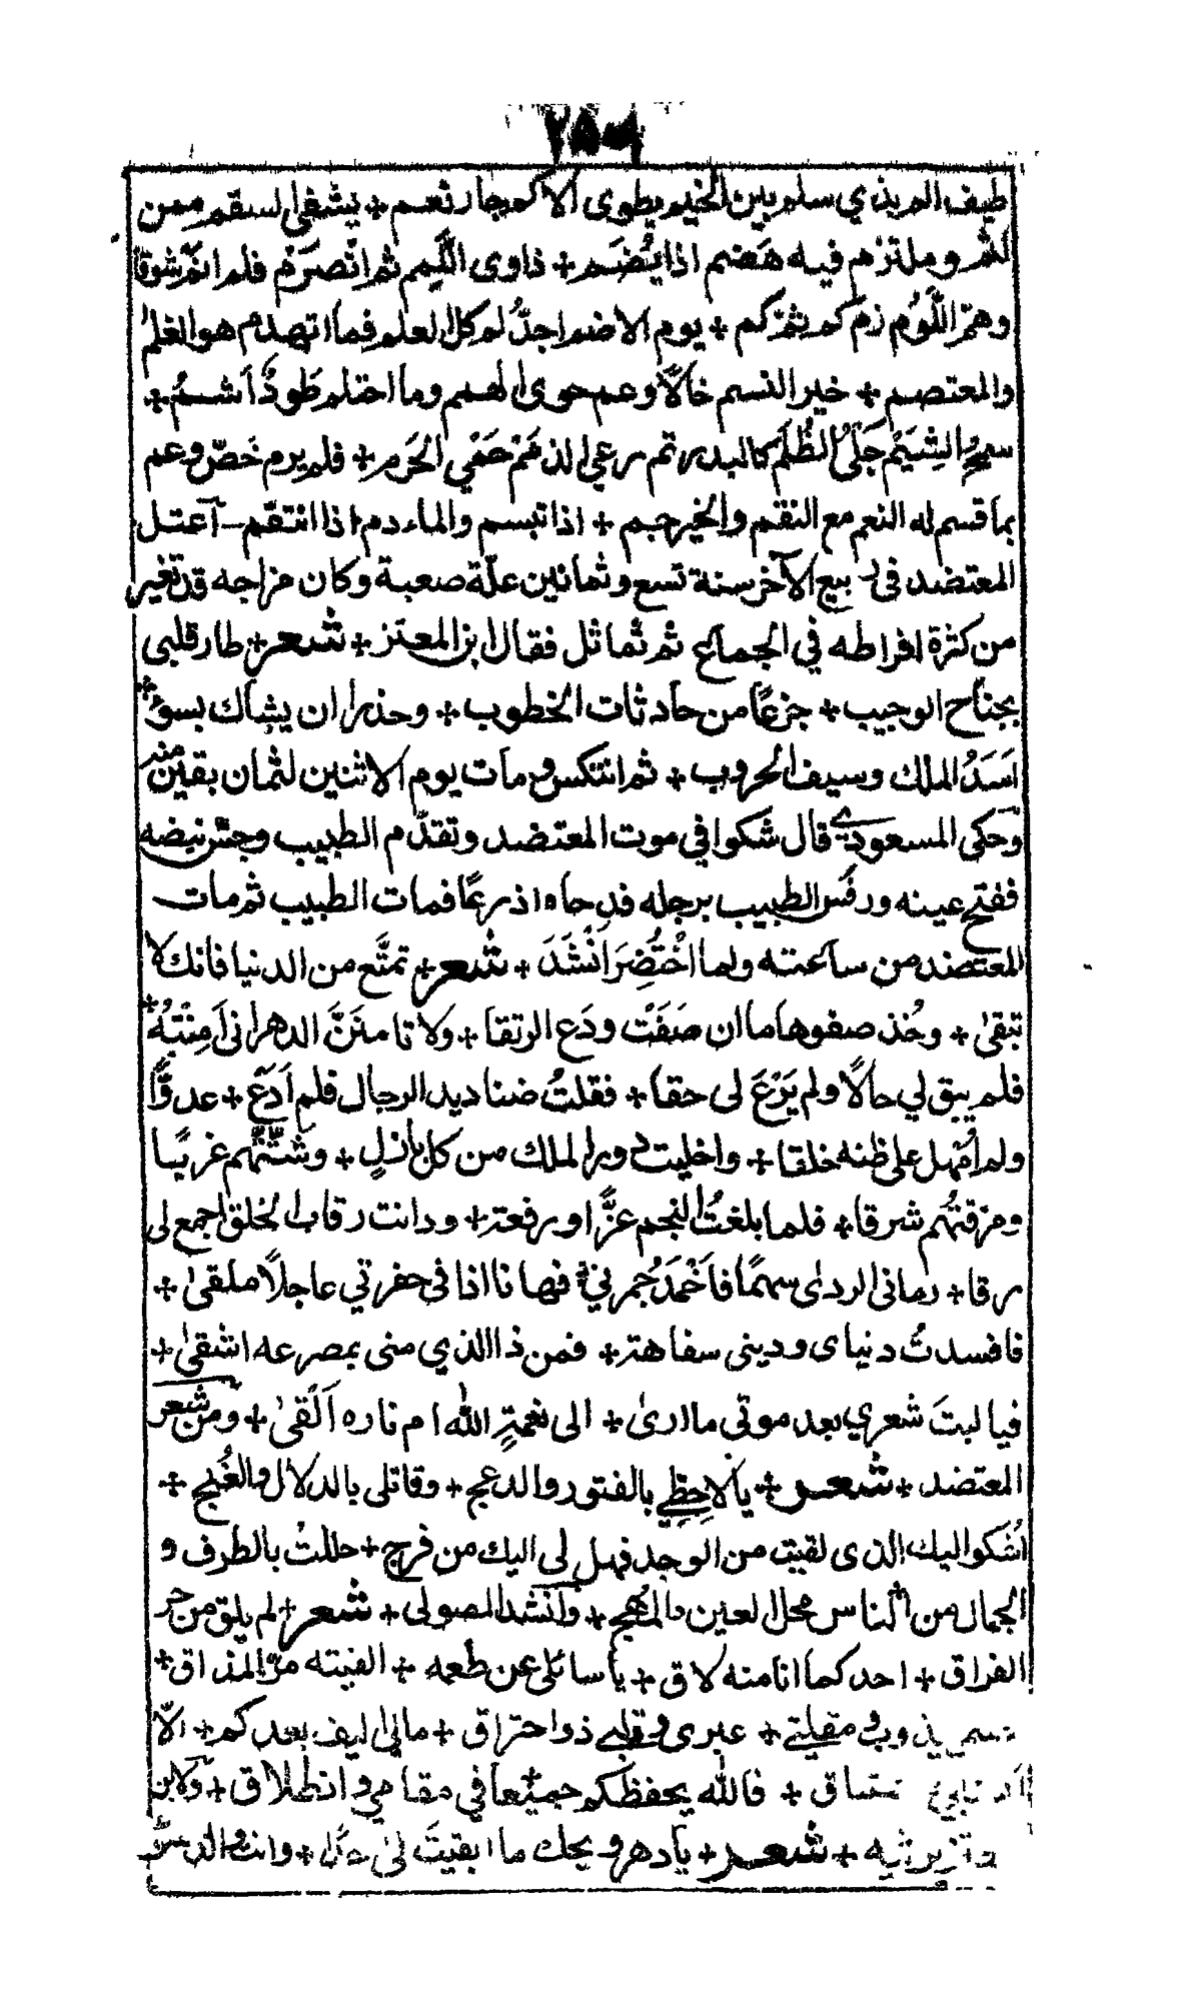 ٢٥٦
طيف الم بذي سلم بين الخيم يطوى الاكم جار نعم + يشفى السقم ممن
لثم وملتزم فيه هضم اذا يُضَم + داوى الَّلِيم ثم انْصَرَم فلم انم شوقا
وهمّ اللَّوُم زم كم ثم كم + يوم الاضم اجدُّ لم كل العلم فما انهدم هو العلم
والمعتصم + خير النسم خالًا وعم حوى الهمم وما احتلم طودٌ أشمُّ +
سمحُ الشِيَمْ جَلَى الظُلَم كالبدر تم رعى الذمَمْ حَمْي الحَرَم + فلم يرم خَصّ وعم
بما قسم له النعم مع النقم والخير جم + اذا تبسم والماء دم اذا انتقم – آعتل
المعتضد فى ربيع الآخر سنة تسع وثمانين علّة صعبة وكان مزاجه قد تغير
من كثرة افراطه في الجماع ثم تماثل فقال ابن المعتز + شعر + طار قلبى
بجناح الوجيب + جزعًا من حادثات الخطوب + وحذرا ان يشاك بسوءٍ +
اَسَدُ الملك وسيف الحروب + ثم انتكس ومات يوم الاثنين لثمان بقين منه
وَحكى المسعودي قال شكوا في موت المعتضد وتقدّم الطبيب وجسّ نبضه
ففتح عينه ورفس الطبيب برجله فدحاه اذرعًا فمات الطبيب ثم مات
المعتضد من ساعته ولما احْتُضِرَ اَنْشَدَ + شعر + تمتَّع من الدنيا فانك لا
تبقى + وخُذ صفوها ما ان صَفَتْ ودَع الرتقا + ولا تا منَنَّ الدهر انى اَمِنْتُهُ +
فلم يبق لي حالًا ولم يَرْعَ لى حقا + فقلتُ ضناديد الرجال فلم اَدَعْ + عدوًّا
ولم أُمْهل على ظنه خلقا + واخليت دور الملك من كل نازلٍ + وشتَّتّهم غربًا
ومزقتهُم شرقا + فلما بلغتُ النجم عزًّا ورفعة + ودانت رقاب الخلق اجمع لى
رقا + رمانى الردى سهمًا فاَخْمَدَ جُمرتي فها نا اذا فى حفرتي عاجلًا ملقىٰ +
فافسدتُ دنياى ودينى سفاهة + فمن ذا الذي منى بمصرعه اشقىٰ +
فيا ليتَ شعري بعد موتى ما ارىٰ + الى نعمةٍ الله ام ناره اَلْقىٰ + ومن شعر
المعتضد + شعر + يا لاحِظِي بالفتور والدعج + وقاتلى بالدلال والغُنج +
اَشكو اليك الذى لقيت من الوجد فهل لى اليك من فرج + حللتْ بالظرف و
الجمال من الناس محل العين والمُهج + وآنشد الصولى + شعر + لم يلق من حر
الفراق + احد كما انا منه لاق + يا سائلى عن طعمه + الفيته مرّ المذاق +
جسمي يذوب ومقلتي + عبرى وقلبي ذو احتراق + مالى اليف بعدكم + الّا
اكتئابي واشتياق + فالله يحفظكم جميعًا في مقامي وانطلاق + ولابن
المعتز يرثيه + شعر + يا دهر ويحك ما ابقيتَ لى احدًا + وانت والد سوء